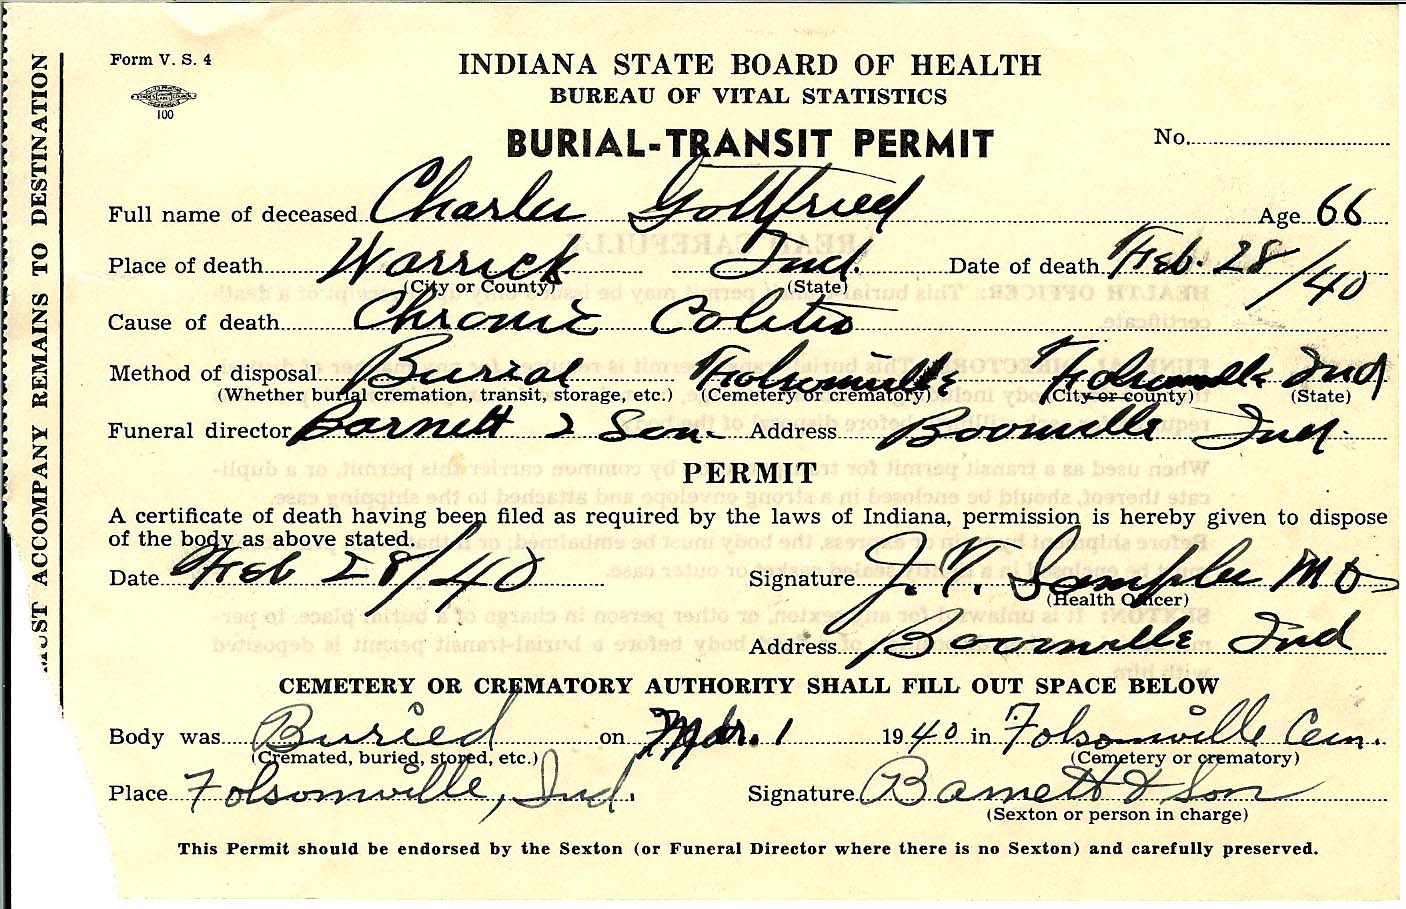 Form V. S. 4
100
INDIANA STATE BOARD OF HEALTH
BUREAU OF VITAL STATISTICS
BURIAL-TRANSIT PERMIT
No.
Full name of deceased Charles Gottfried Age 66
Place of death Warrick Ind. Date of death Feb. 28/40
(City or County) (State)
Cause of death Chronic Colitis
Method of disposal Burial Folsomville Folsomville Ind
(Whether burial cremation, transit, storage, etc.) (Cemetery or crematory) (City or county) (State)
Funeral director Barnett & Son. Address Boonville Ind.
PERMIT
A certificate of death having been filed as required by the laws of Indiana, permission is hereby given to dispose
of the body as above stated.
Date Feb 28/40 Signature J. Y. Samples MD
(Health Officer)
Address Boonville Ind
CEMETERY OR CREMATORY AUTHORITY SHALL FILL OUT SPACE BELOW
Body was Buried on Mar. 1 1940 in Folsomville Cem.
(Cremated, buried, stored, etc.) (Cemetery or crematory)
Place Folsomville, Ind. Signature Barnett & Son
(Sexton or person in charge)
This Permit should be endorsed by the Sexton (or Funeral Director where there is no Sexton) and carefully preserved.
UST ACCOMPANY REMAINS TO DESTINATION